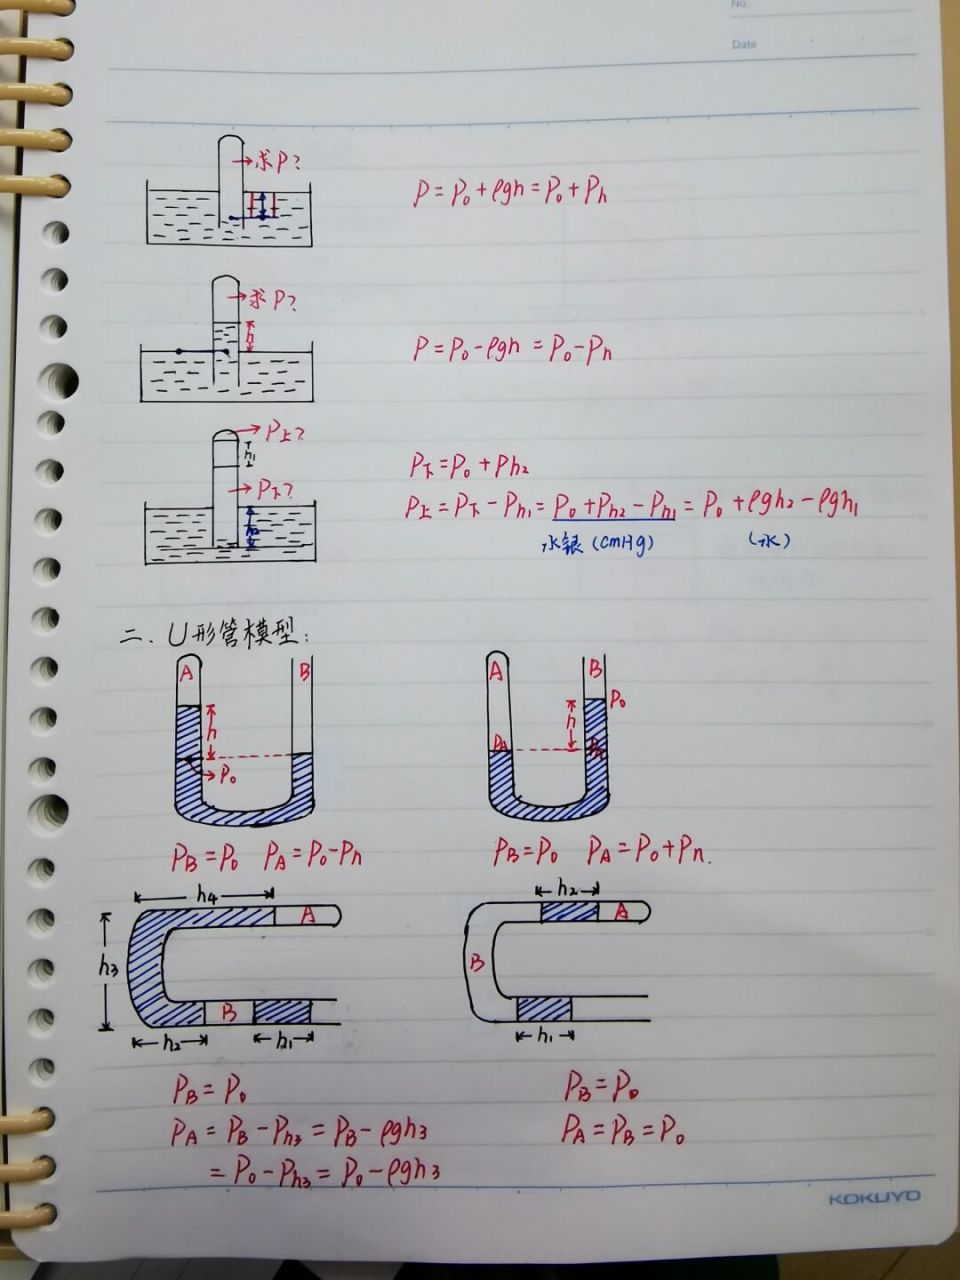 No.
Date
求P?
P=P₀+ρgh=P₀+Ph
求P?
h
P=P₀-ρgh=P₀-Ph
P上?
h₁
P下?
h₂
P下=P₀+Ph₂
P上=P下-Ph₁=P₀+Ph₂-Ph₁=P₀+ρgh₂-ρgh₁
水银(cmHg) (水)
二.U形管模型:
A B A B
h P₀ h P₀
PA PA
PB=P₀ PA=P₀-Ph PB=P₀ PA=P₀+Ph.
h₄ h₂
A A
h₃ B B
h₂ h₁ h₁
PB=P₀ PB=P₀
PA=PB-Ph₃=PB-ρgh₃ PA=PB=P₀
=P₀-Ph₃=P₀-ρgh₃
KOKUYO